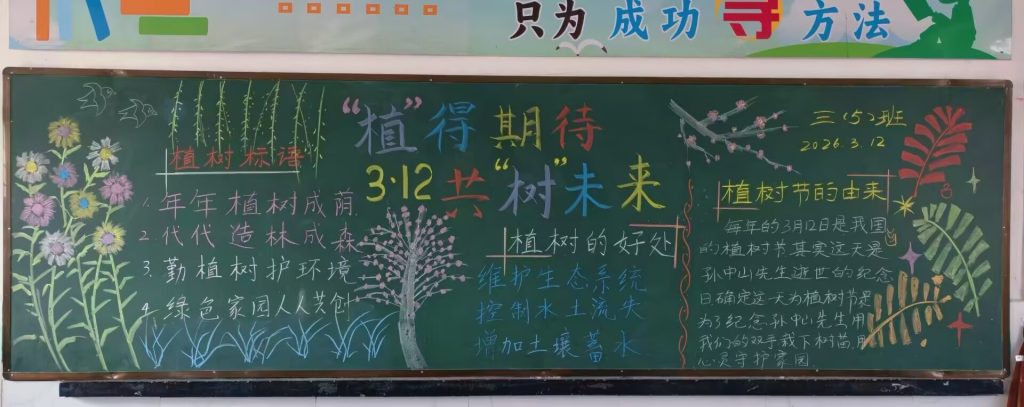 只为成功寻方法
“植”得期待
3·12共“树”未来
三(5)班
2026.3.12
植树标语
1.年年植树成荫
2.代代造林成森
3.勤植树护环境
4.绿色家园人人共创
植树的好处
维护生态系统
控制水土流失
增加土壤蓄水
植树节的由来
每年的3月12日是我国
的植树节其实这天是
孙中山先生逝世的纪念
日确定这一天为植树节是
为了纪念孙中山先生用
我们的双手栽下树苗,用
心灵守护家园